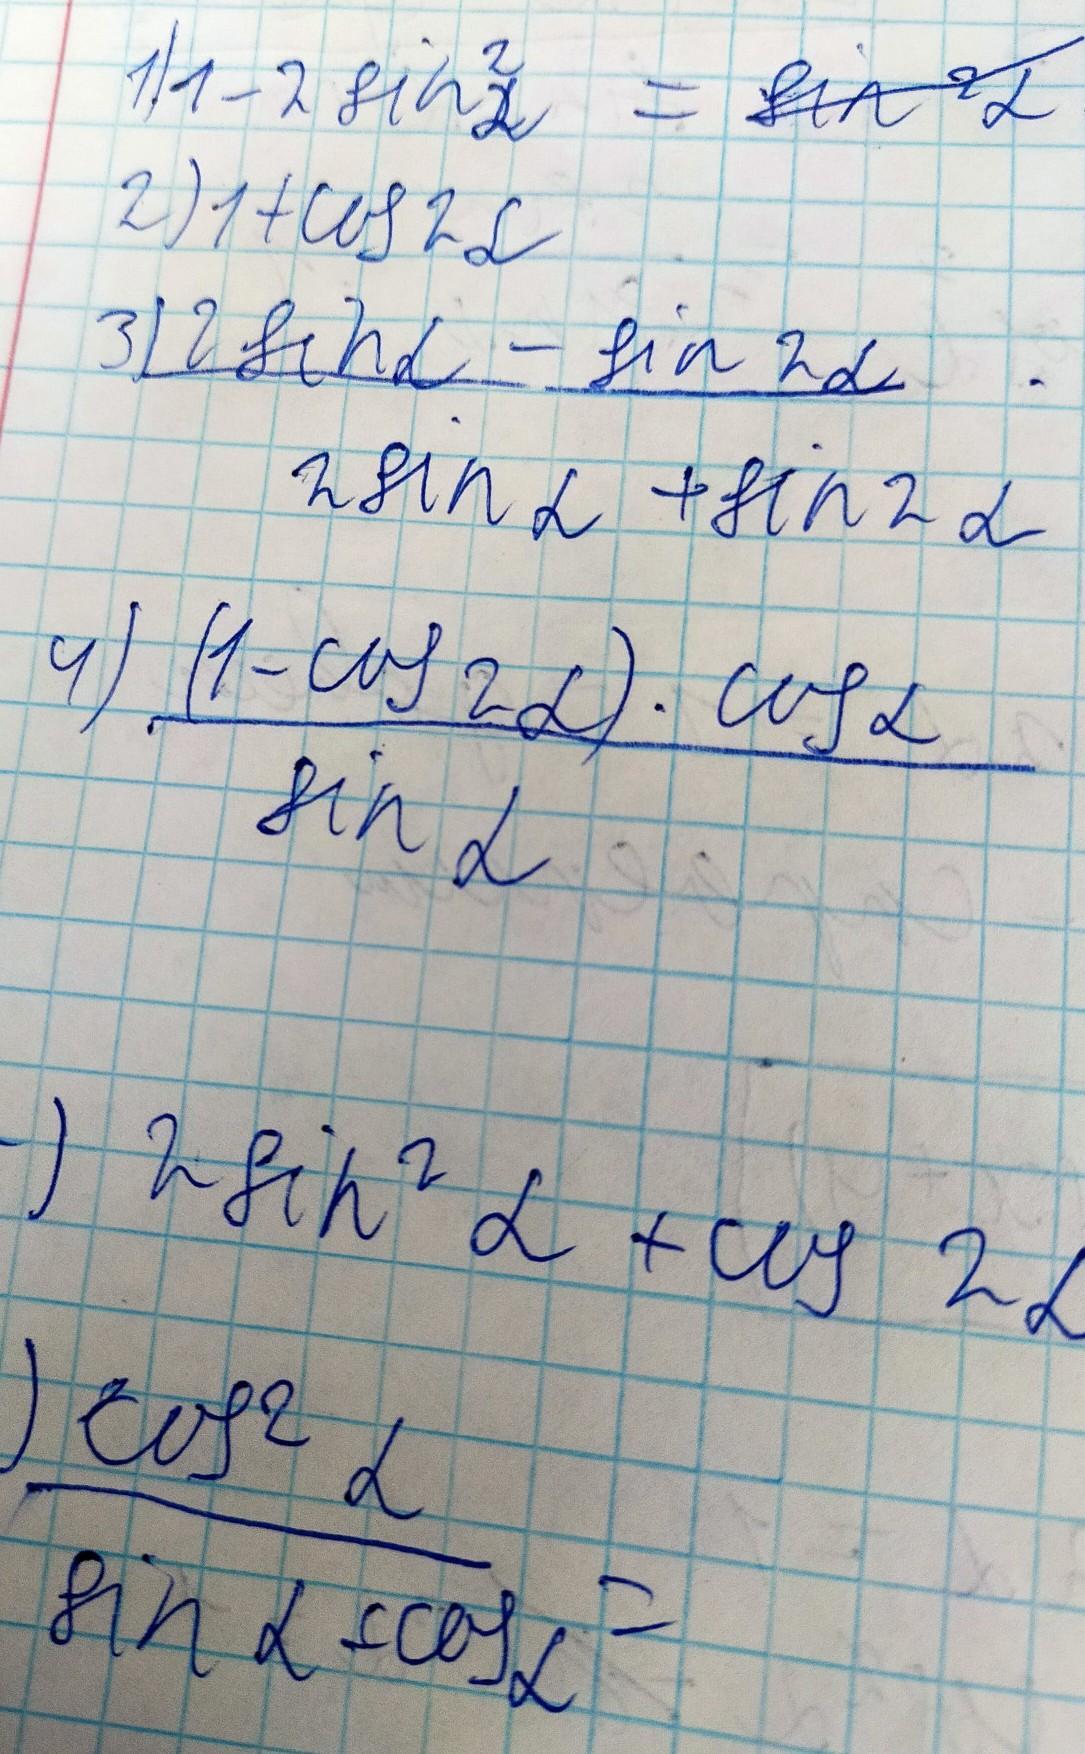 1) 1 - 2 sin² α = sin² α
2) 1 + cos 2 α
3) 2 sin α - sin 2 α
2 sin α + sin 2 α
4) (1 - cos 2 α) · cos α
sin α
-) 2 sin² α + cos 2 α
) cos 2 α
sin α - cos α =